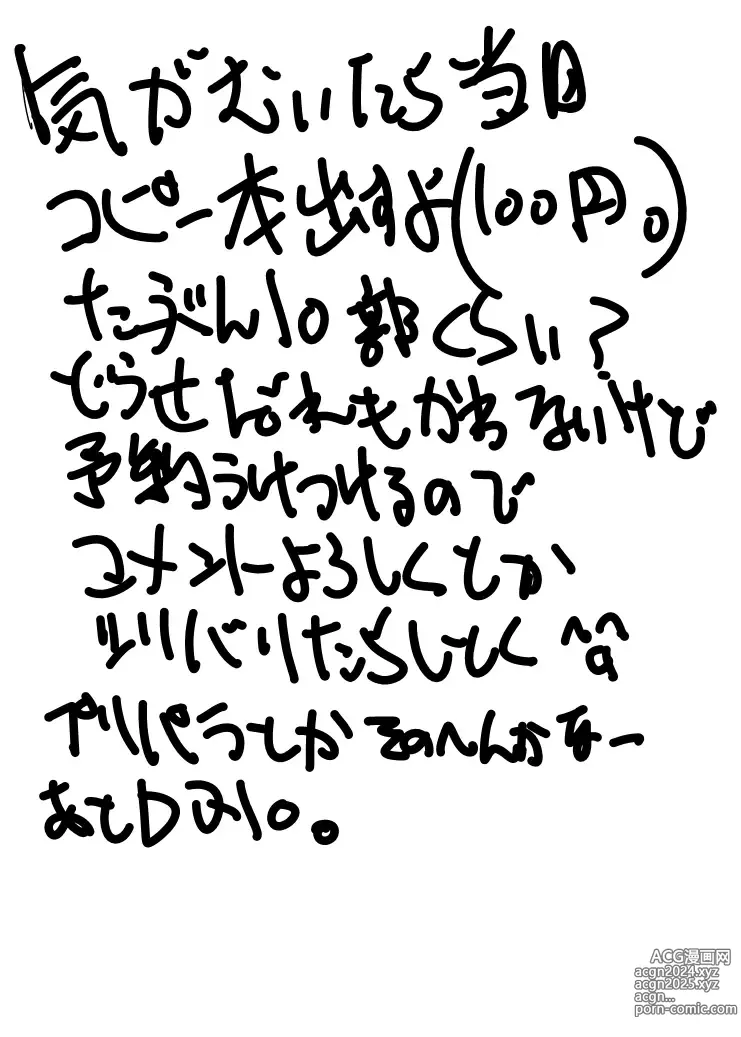 気がむいたら当日
コピー本出すよ(100円。)
たぶん10部くらい?
どうせだれもかわないけど
予約うけつけるので
コメントよろしくとか
ツリバリたらしとく ^q^
プリパラとかそのへんかなー
あとDQ10。
ACG漫画网
acgn2024.xyz
acgn2025.xyz
acgn...
porn-comic.com